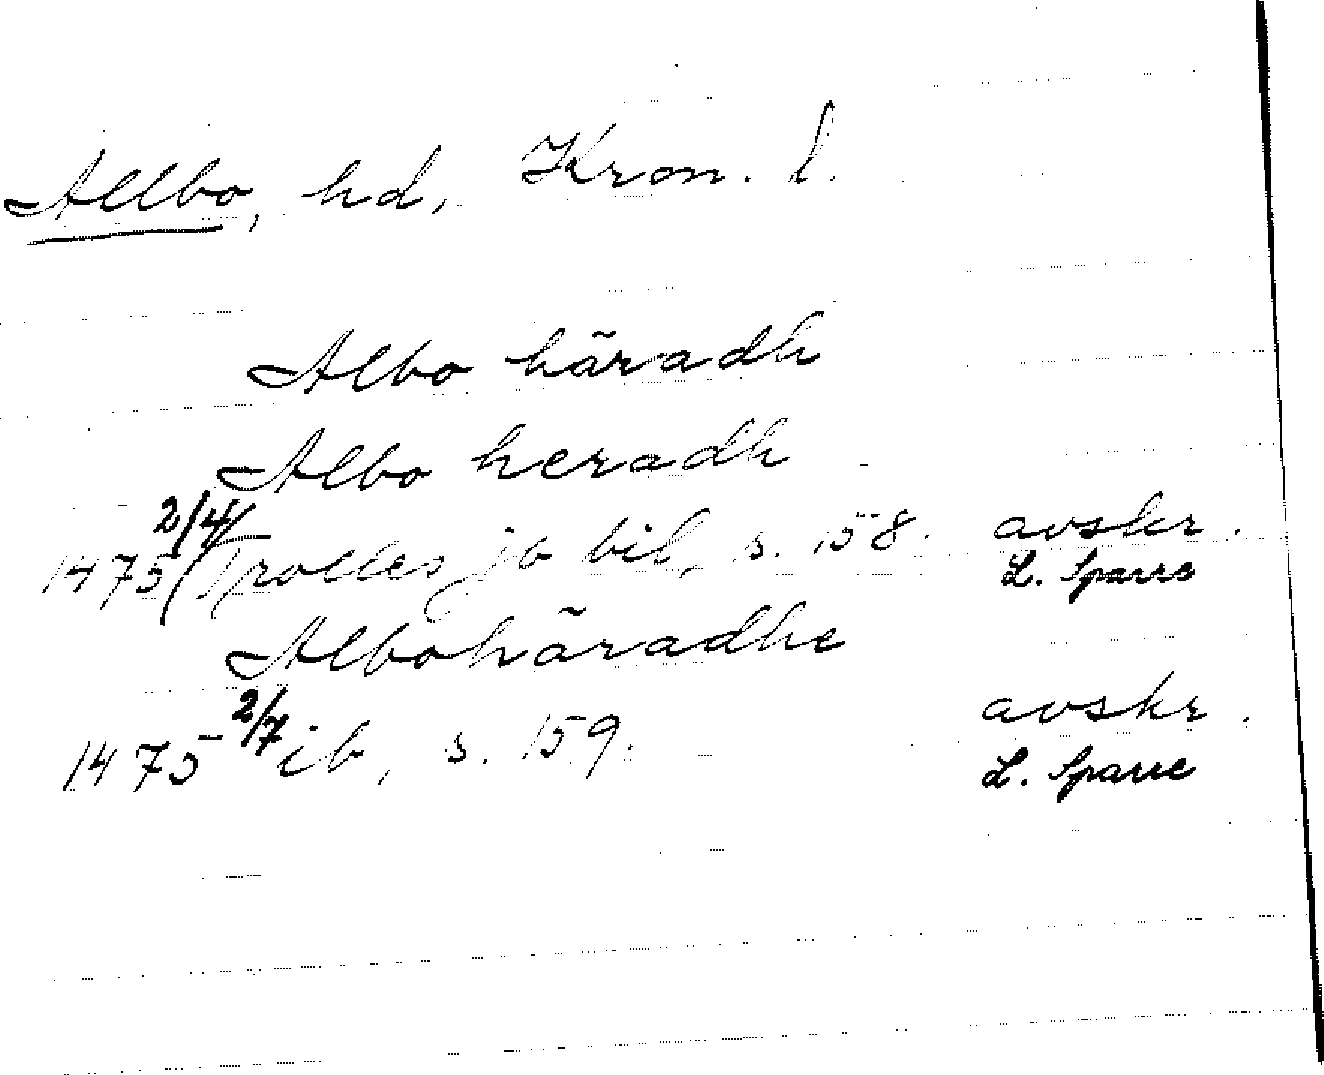 Allbo, hd, Kron. l.
Albo häradh
Albo heradh
1475 2/4 (Trolles jb bil, s. 158. avskr.
L. Sparre
Albohäradhe
1475 2/7 ib, s. 159. avskr.
L. Sparre